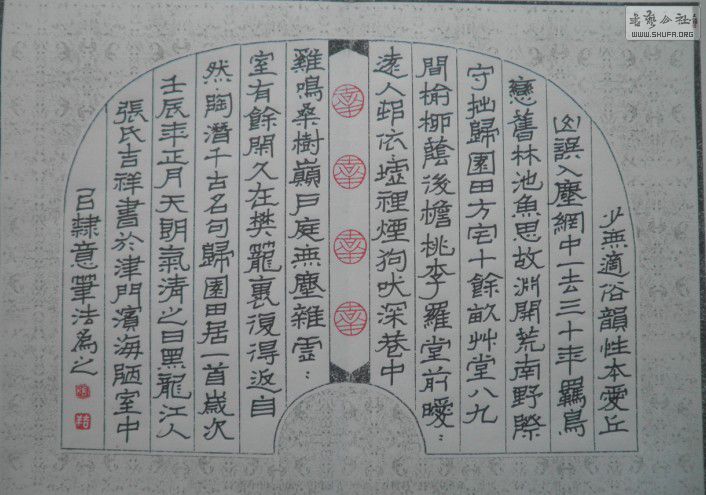 少無適俗韻性本愛丘
山誤入塵網中一去三十年羈鳥
戀舊林池魚思故淵開荒南野際
守拙歸園田方宅十餘畝艸堂八九
間榆柳蔭後檐桃李羅堂前曖:
遠人邨依墟裡煙狗吠深巷中
雞鳴桑樹巔戶庭無塵雜虛:
室有餘閑久在樊籠裏復得返自
然:陶潛千古名句歸園田居一首歲次
壬辰年正月天朗氣清之日黑龍江人
張氏吉祥書於津門濱海陋室中
㠯隸意筆法為之
书艺公社
WWW.SHUFA.ORG